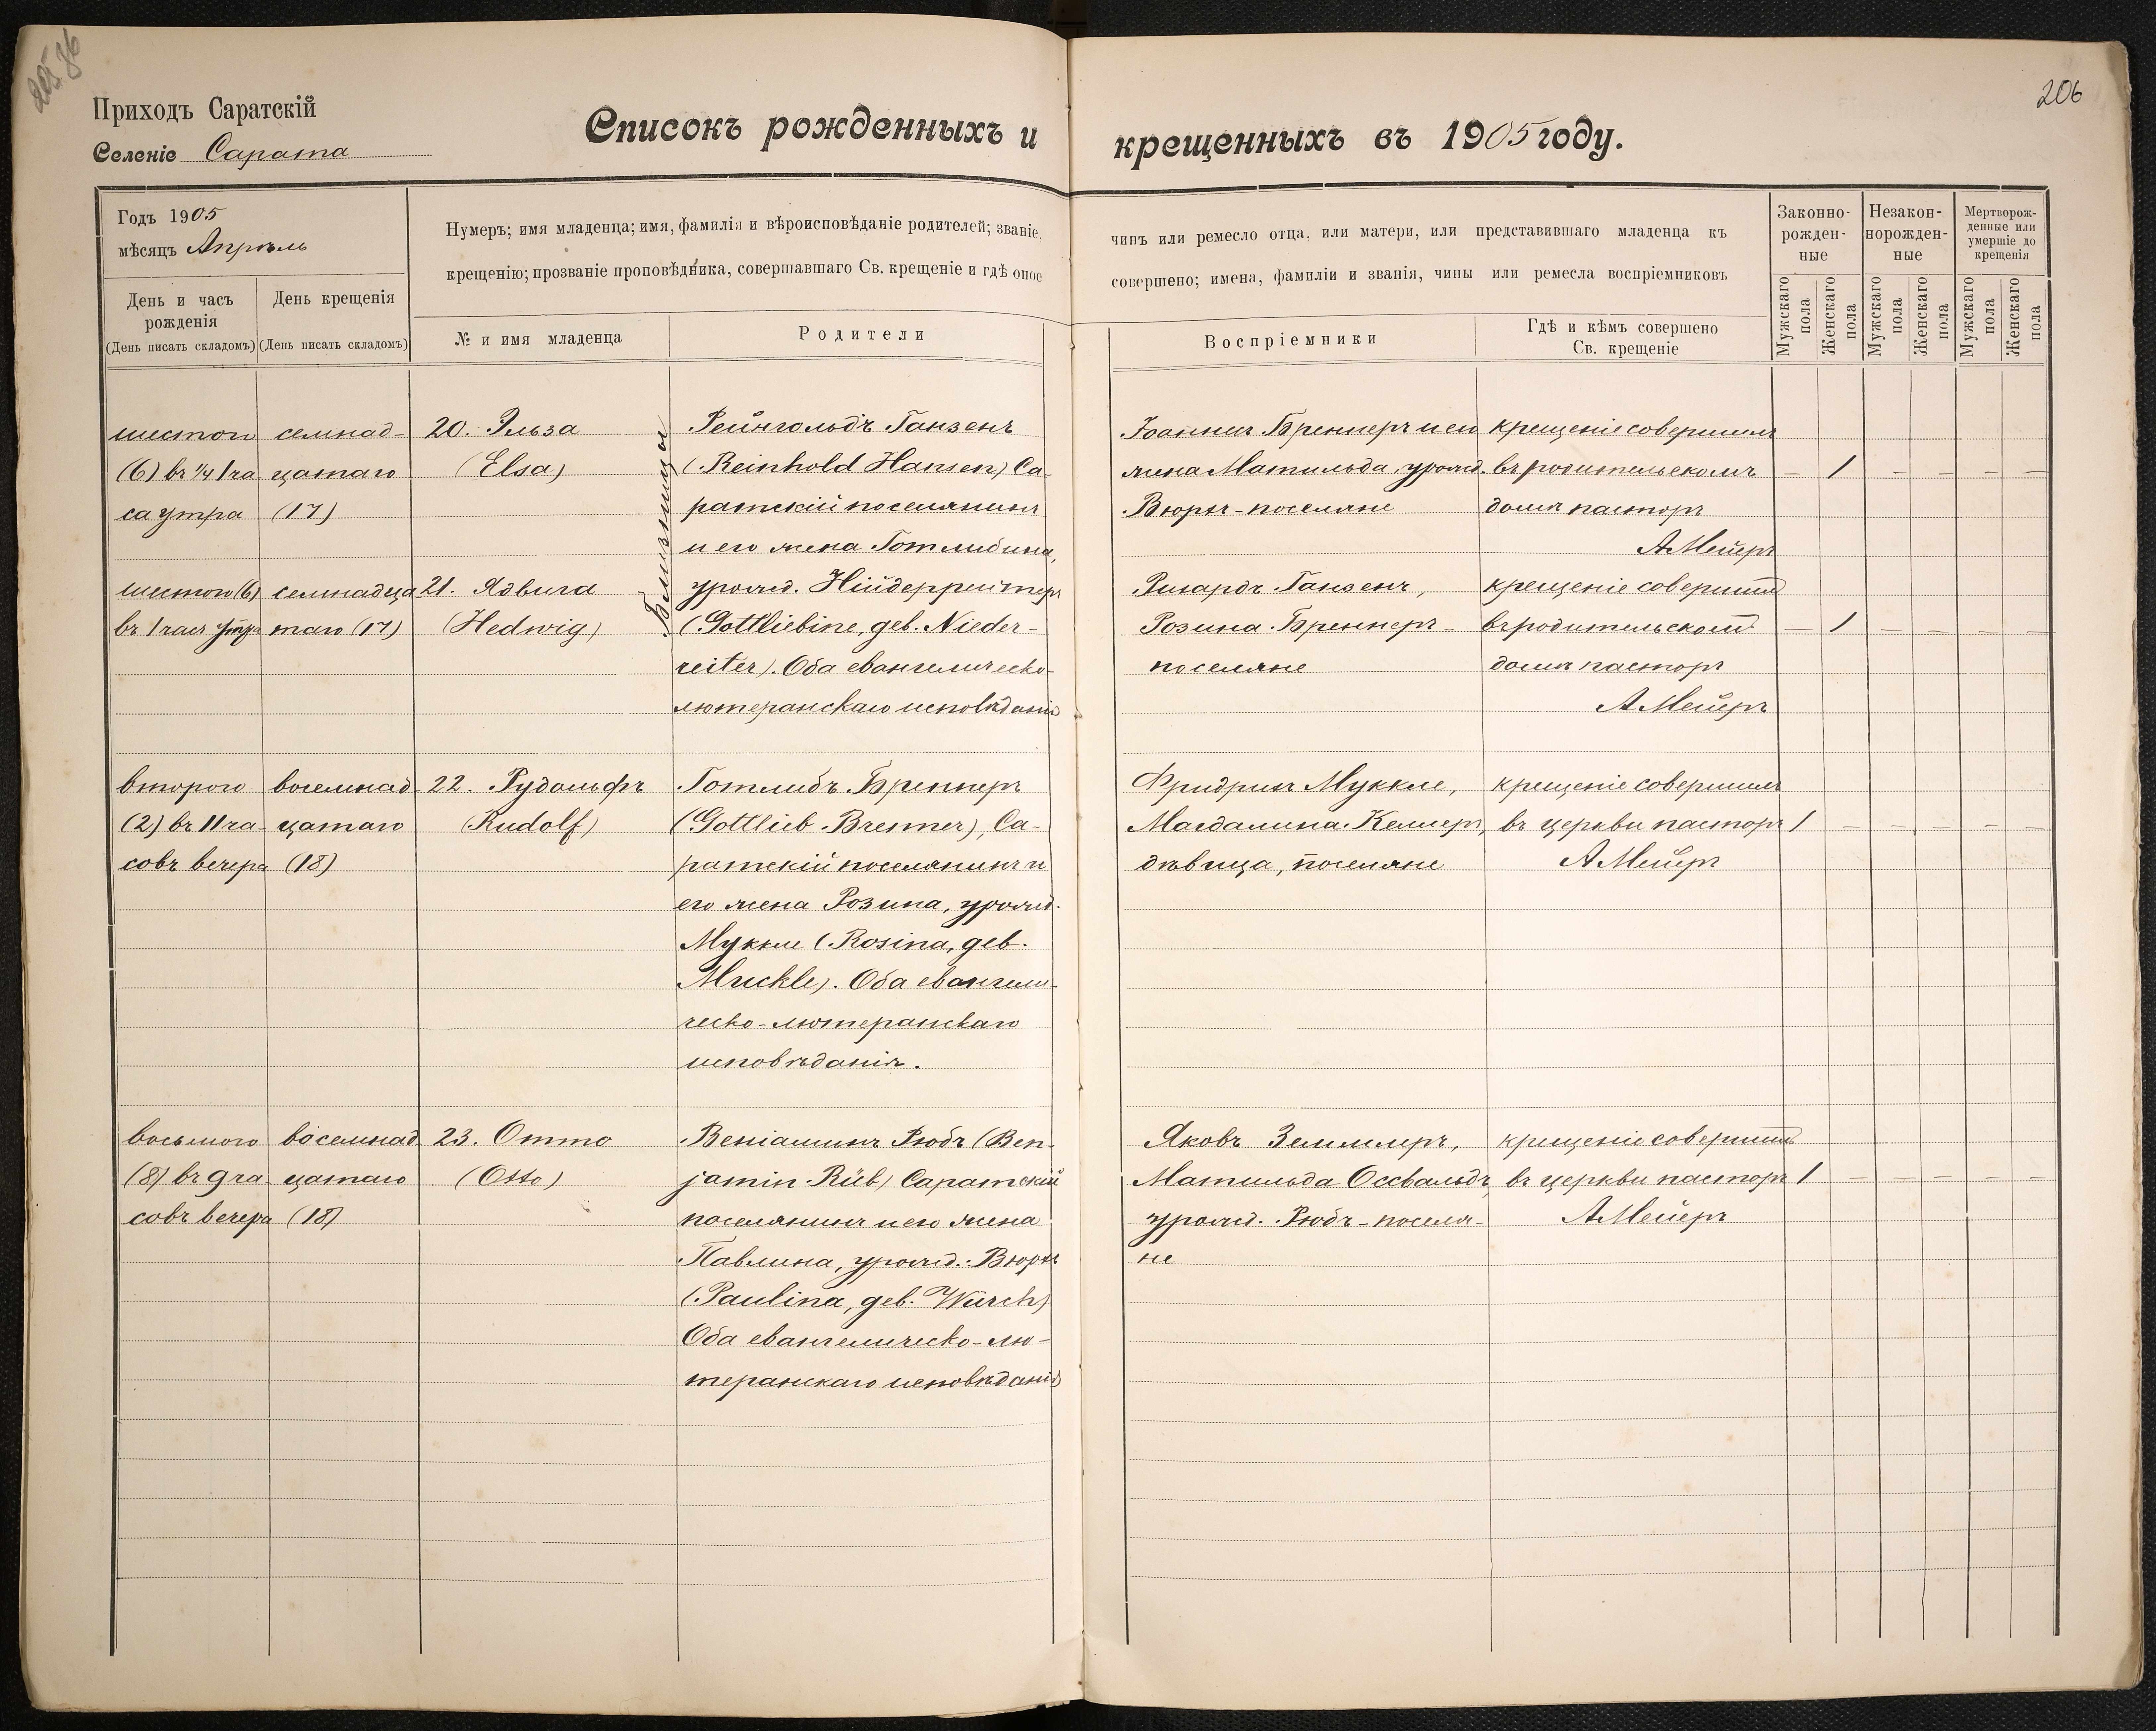 206
Приходъ Саратскій
Селеніе Сарата
Списокъ рожденныхъ и крещенныхъ въ 1905 году.
Годъ 1905
мѣсяцъ Апрѣль
Нумеръ; имя младенца; имя, фамилія и вѣроисповѣданіе родителей; званіе,
чинъ или ремесло отца, или матери, или представившаго младенца къ
крещенію; прозваніе проповѣдника, совершавшаго Св. крещеніе и гдѣ оное
совершено; имена, фамиліи и званія, чины или ремесла воспріемниковъ
День и часъ
рожденія
(День писать складомъ)
День крещенія
(День писать складомъ)
№ и имя младенца
Родители
Воспріемники
Гдѣ и кѣмъ совершено
Св. крещеніе
Законно-
рожден-
ные
Незакон-
норожден-
ные
Мертворож-
денные или
умершіе до
крещенія
Мужскаго
пола
Женскаго
пола
Мужскаго
пола
Женскаго
пола
Мужскаго
пола
Женскаго
пола
шестого
(6) въ 1/4 1 ча-
са утра
семнад-
цатаго
(17)
20. Эльза
(Elsa)
Близницы
Рейнгольдъ Ганзенъ
(Reinhold Hansen) Са-
ратскій поселянинъ
и его жена Готлибина,
урожд. Нійдеррейтеръ
(Gottliebine, geb. Nieder-
reiter). Оба евангелическо-
лютеранскаго исповѣданія
Іоаннъ Бреннеръ и его
жена Матильда, урожд.
Вюрхъ - поселяне
крещеніе совершилъ
въ родительскомъ
домѣ пасторъ
А Мейеръ
— 1 — — — —
шестого (6)
въ 1 часъ утра
семнадца
таго (17)
21. Ядвига
(Hedwig)
Рихардъ Ганзенъ,
Розина Бреннеръ -
поселяне
крещеніе совершилъ
въ родительскомъ
домѣ пасторъ
А Мейеръ
— 1 — — — —
второго
(2) въ 11 ча-
совъ вечера
восемнад
цатаго
(18)
22. Рудольфъ
(Rudolf)
Готлибъ Бреннеръ
(Gottlieb Brenner), Са-
ратскій поселянинъ и
его жена Розина, урожд.
Муккле (Rosina, geb.
Muckle). Оба евангели-
ческо-лютеранскаго
исповѣданія.
Фридрихъ Муккле,
Магдалина Келлеръ,
дѣвица, поселяне
крещеніе совершилъ
въ церкви пасторъ
А Мейеръ
1 — — — — —
восьмого
(8) въ 9 ча-
совъ вечера
восемнад
цатаго
(18)
23. Отто
(Otto)
Веніаминъ Рюбъ (Ben-
jamin Rüb) Саратскій
поселянинъ и его жена
Павлина, урожд. Вюрхъ
(Paulina, geb. Würch)
Оба евангелическо-лю-
теранскаго исповѣданія
Яковъ Земмлеръ,
Матильда Оссвальдъ,
урожд. Рюбъ - поселя-
не
крещеніе совершилъ
въ церкви пасторъ
А Мейеръ
1 — — — — —